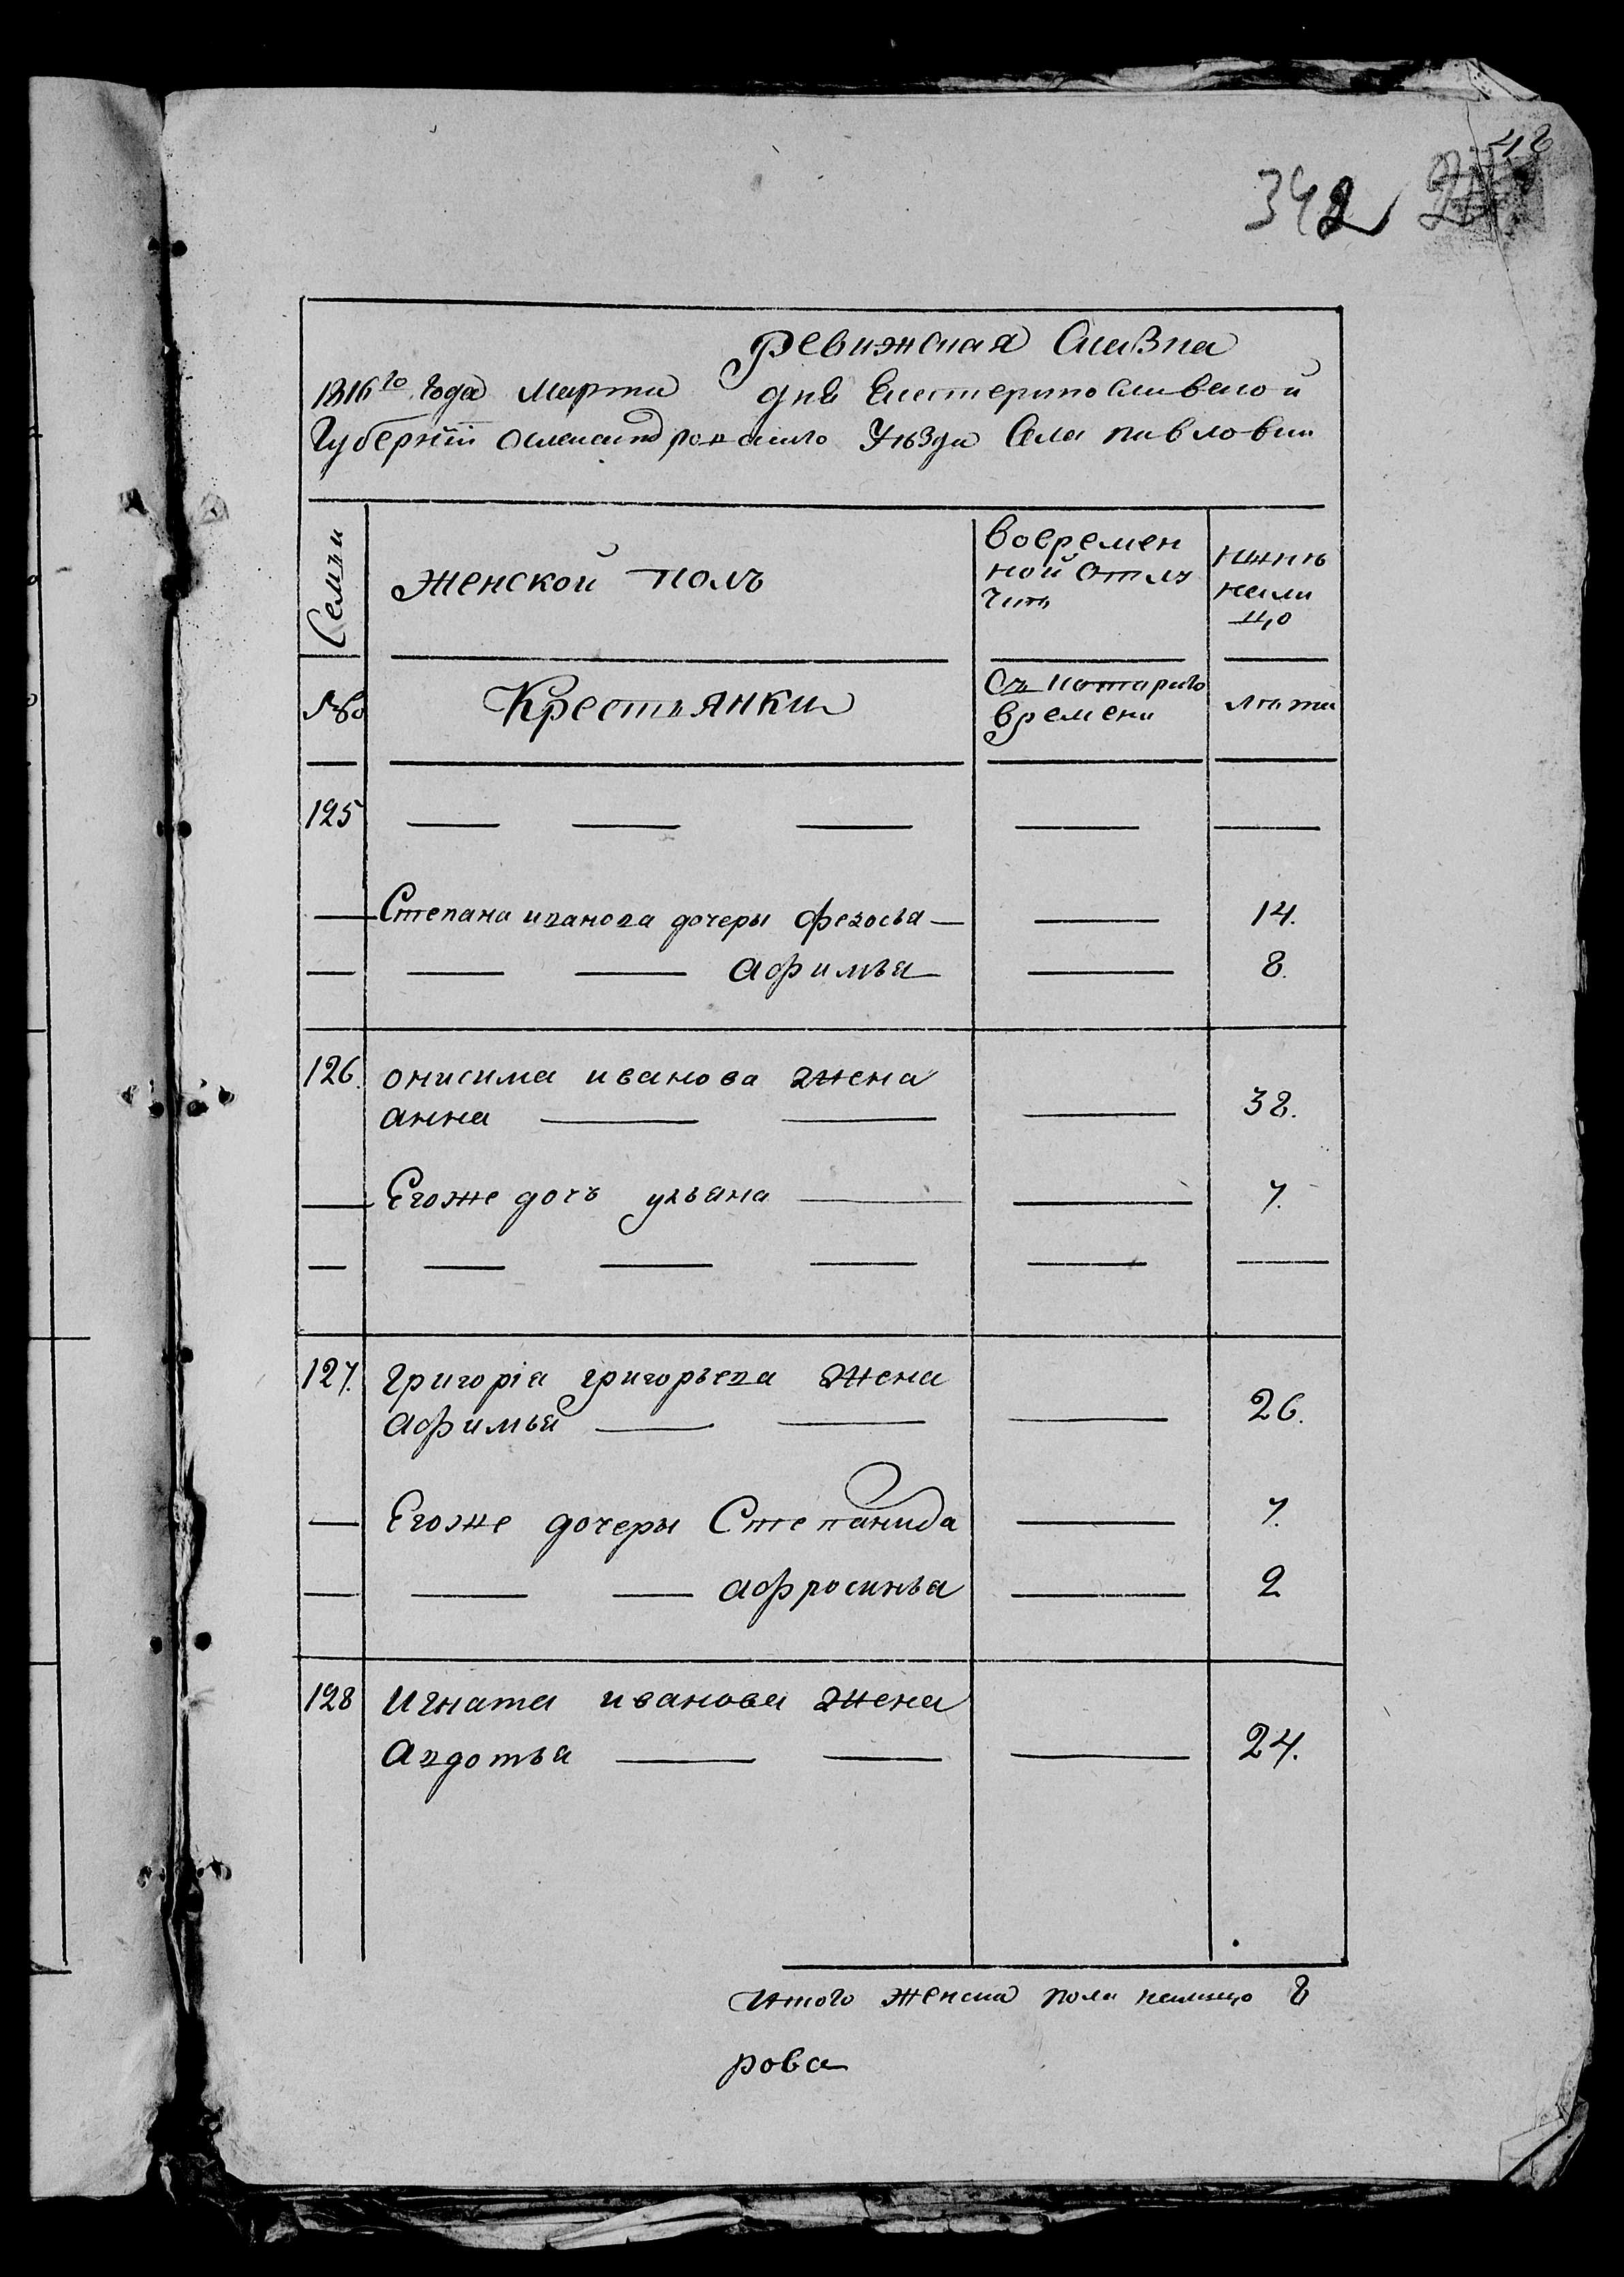 48
342
Ревижская Сказка
1816го Года Марта дня Екатеринославской
Губернїи Олександровского Уѣзда Села Павловки
Семьи
Женской полъ
Вовремен
ной отлу
чкѣ
нынѣ
нали
цо
№
Крестьянки
Съ котораго
времени
лѣта
125 — — — — —
— Степана иванова дочеры Феѳосья — — 14.
— — — Афимья — — 8.
126. онисима иванова жена
анна — — — 38.
— Егоже дочь ульяна — — 7.
— — — — — —
127. григоріа григорьева жена
Афимья — — — 26.
— Егоже дочеры Степанида — 7.
— — — Афросинья — 2
128 Игната иванова жена
Авдотья — — — 24.
Итого женска пола налицо 8
рова